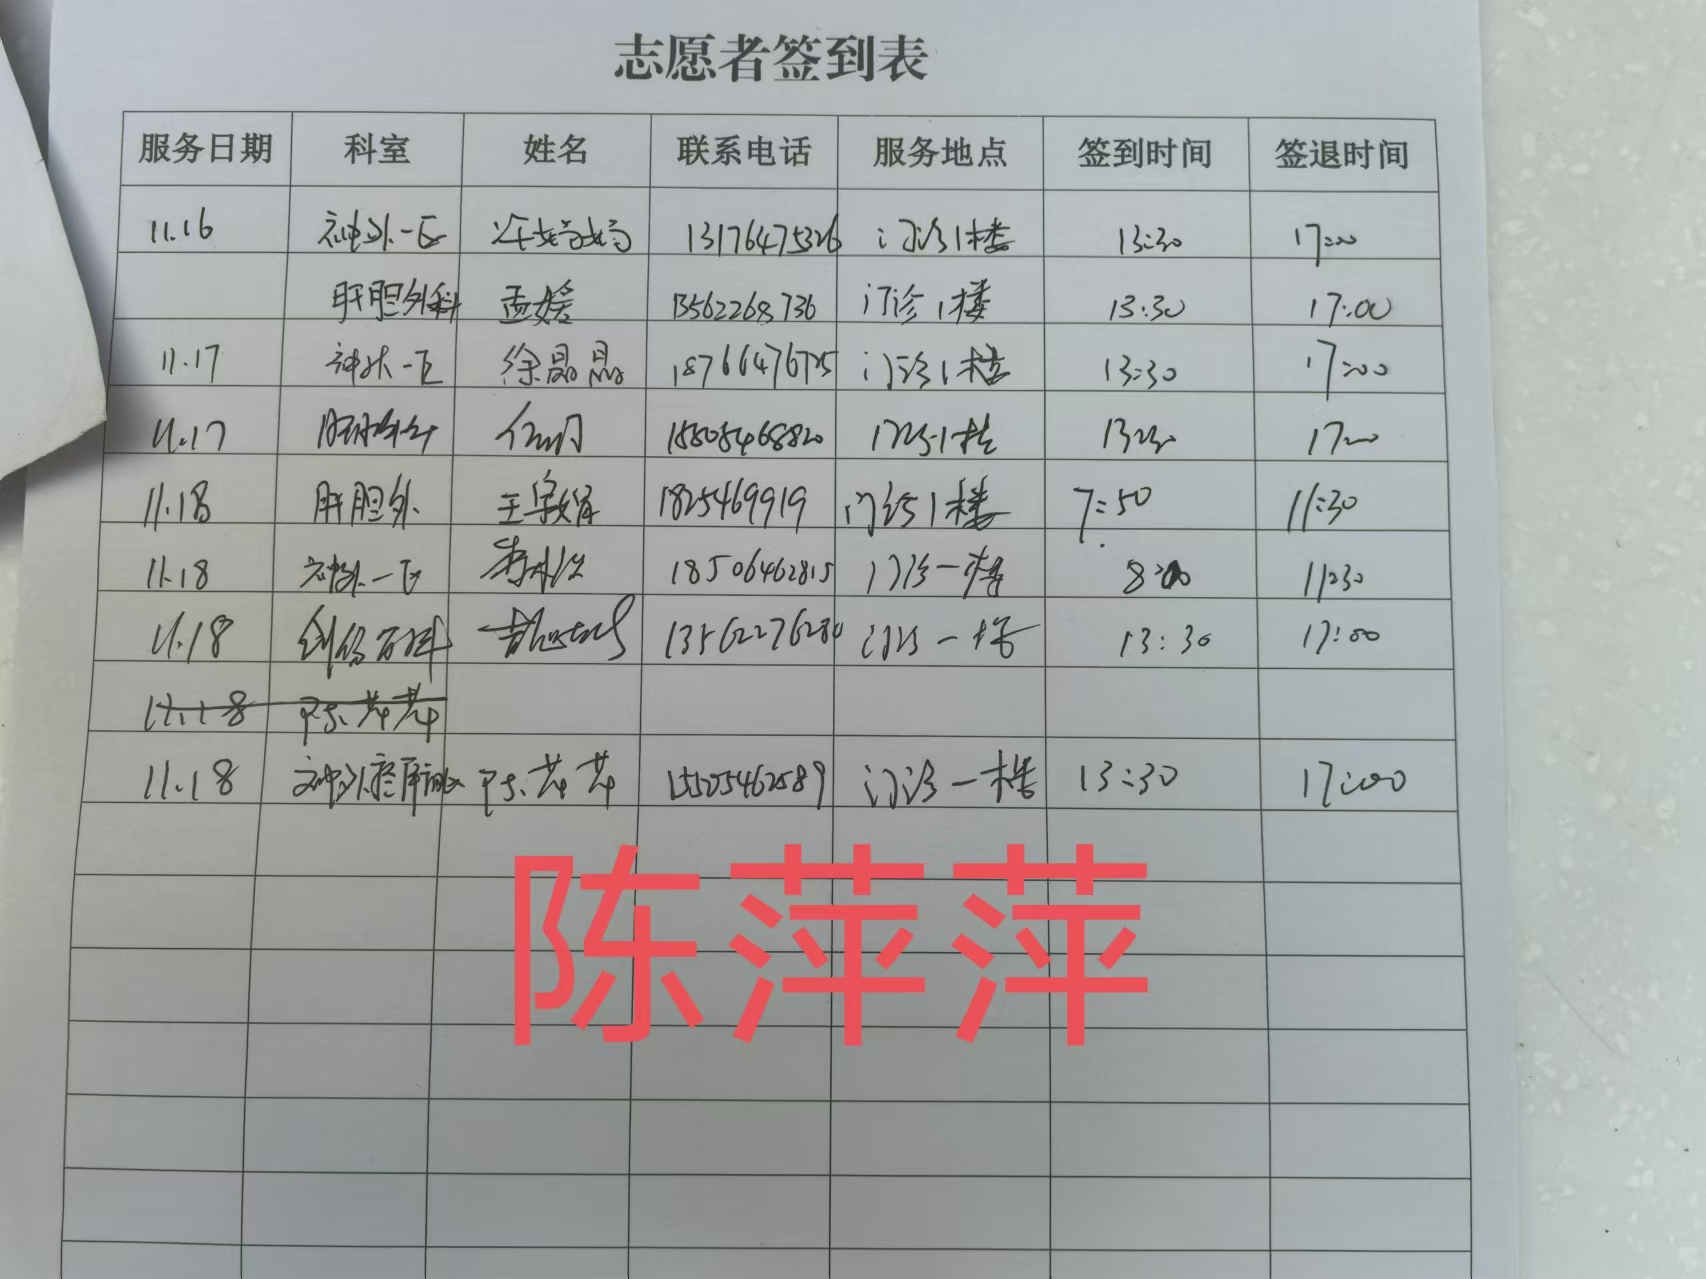 志愿者签到表
服务日期 科室 姓名 联系电话 服务地点 签到时间 签退时间
11.16 神外一区 13176475326 门诊1楼 13:30 17:00
肝胆外科 孟媛 13562268736 门诊1楼 13:30 17:00
11.17 神外一区 徐晶晶 门诊1楼 13:30 17:00
11.17 门诊1楼 13:30 17:00
11.18 肝胆外 王 1825469919 门诊1楼 7:50 11:30
11.18 神外一区 18506462815 门诊一楼 8:00 11:30
11.18 创伤百科 门诊一楼 13:30 17:00
11.18 陈萍萍
11.18 陈萍萍 门诊一楼 13:30 17:00
陈萍萍